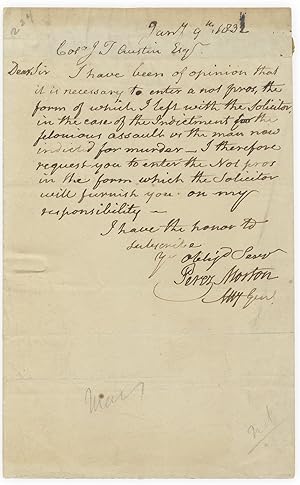 Jany 9th 1832
J T Austin Esqr
Dear Sir
I have been of opinion that
it is necessary to enter a not pros, the
form of which I left with the Solicitor,
in the case of the Indictment for the
felonious assault vs the man now
indicted for murder — I therefore
request you to enter the Not pros
in the form which the Solicitor
will furnish you on my
responsibility —
I have the honor to
subscribe
Yr Oblig'd Serv
Perez Morton
Atty Gen